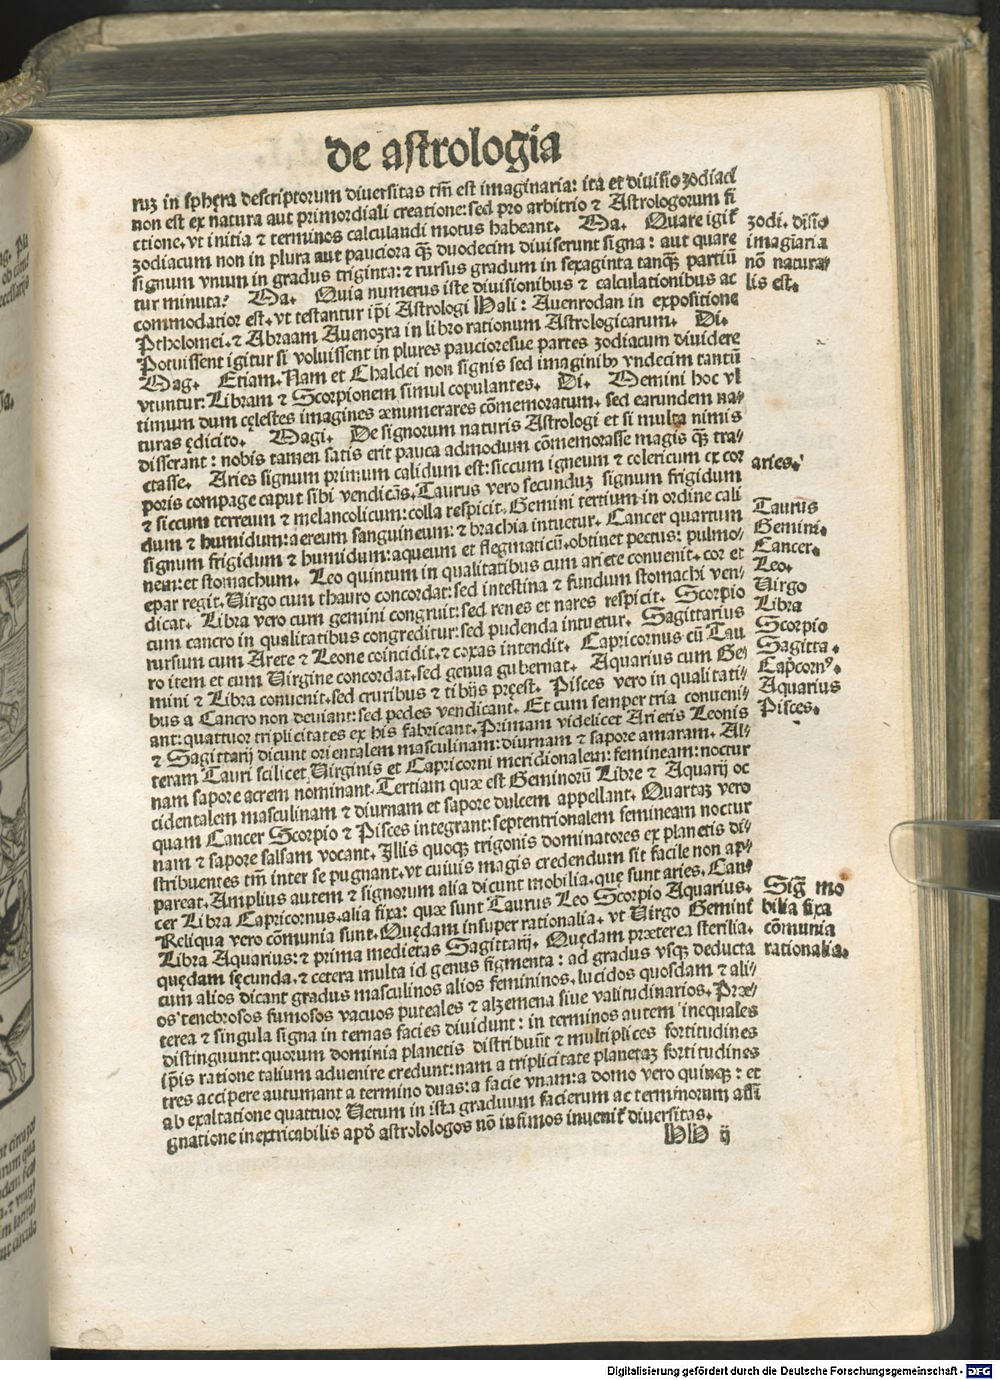 de astrologia
ruꝫ in sphęra descriptorum diuersitas tm̄ est imaginaria: ita et diuisio zodiaci
non est ex natura aut primordiali creatione: sed pro arbitrio ⁊ Astrologorum fi
ctione, vt initia ⁊ terminos calculandi motus habeant. Da. Quare igit̄
zodiacum non in plura aut pauciora qꝫ̄ duodecim diuiserunt signa: aut quare
signum vnum in gradus triginta: ⁊ rursus gradum in sexaginta tanqꝫ̄ partiū
tur minuta? Ma. Quia numerus iste diuisionibus ⁊ calculationibus ac
commodatior est. vt testantur ip̄i Astrologi Hali: Auenrodan in expositione
Ptholomei. ⁊ Abraam Auenozra in libro rationum Astrologicarum. Di.
Potuissent igitur si voluissent in plures paucioresue partes zodiacum diuidere
Mag. Etiam. Nam et Chaldei non signis sed imaginibꝫ vndecim tantū
vtuntur: Libram ⁊ Scorpionem simul copulantes. Di. Demini hoc vl
timum dum cęlestes imagines ænumerares cōmemoratum. sed earundem na-
turas ędicito. Magi. De signorum naturis Astrologi et si multa nimis
disserant: nobis tamen satis erit pauca admodum cōmemorasse magis qꝫ̄ tra-
ctasse. Aries signum primum calidum est: siccum igneum ⁊ colericum ex cor
poris compage caput sibi vendicās. Taurus vero secunduꝫ signum frigidum
⁊ siccum terreum ⁊ melancolicum: colla respicit. Gemini tertium in ordine cali
dum ⁊ humidum: aereum sanguineum: ⁊ brachia intuetur. Cancer quartum
signum frigidum ⁊ humidum: aqueum et flegmaticū. obtinet pectus: pulmo-
nem: et stomachum. Leo quintum in qualitatibus cum ariete conuenit. cor et
epar regit. Uirgo cum thauro concordat: sed intestina ⁊ fundum stomachi ven-
dicat. Libra vero cum gemini congruit: sed renes et nares respicit. Scorpio
cum cancro in qualitatibus congreditur: sed pudenda intuetur. Sagittarius
rursum cum Arete ⁊ Leone coincidit. ⁊ coxas intendit. Capricornus cū Tau
ro item et cum Uirgine concordat. sed genua gubernat. Aquarius cum Ge-
mini ⁊ Libra conuenit. sed cruribus ⁊ tibijs pręest. Pisces vero in qualitati-
bus a Cancro non deuiant: sed pedes vendicant. Et cum semper tria conueni-
ant: quattuor triplicitates ex his fabricant. Primam videlicet Arietis Leonis
⁊ Sagittarij dicunt orientalem masculinam: diurnam ⁊ sapore amaram. Al-
teram Tauri scilicet Uirginis et Capricorni meridionalem: femineam: noctur
nam sapore acrem nominant. Tertiam quæ est Geminorū Libre ⁊ Aquarij oc
cidentalem masculinam ⁊ diurnam et sapore dulcem appellant. Quartaꝫ vero
quam Cancer Scorpio ⁊ Pisces integrant: septentrionalem femineam noctur
nam ⁊ sapore salsam vocant. Illis quoqꝫ trigonis dominatores ex planetis di-
stribuentes tm̄ inter se pugnant. vt cuiuis magis credendum sit facile non ap-
pareat. Amplius autem ⁊ signorum alia dicunt mobilia. quę sunt aries. Can-
cer Libra Capricornus. alia fixa: quæ sunt Taurus Leo Scorpio Aquarius.
Reliqua vero cōmunia sunt. Quędam insuper rationalia. vt Uirgo Gemini
Libra Aquarius: ⁊ prima medietas Sagittarij. Quędam præterea sterilia.
quędam fęcunda. ⁊ cetera multa id genus figmenta: ad gradus vsqꝫ deducta
cum alios dicant gradus masculinos alios femininos. lucidos quosdam ⁊ ali-
os tenebrosos fumosos vacuos puteales ⁊ alzemena siue valitudinarios. Præ-
terea ⁊ singula signa in ternas facies diuidunt: in terminos autem inequales
distinguunt: quorum dominia planetis distribuūt ⁊ multiplices fortitudines
ip̄is ratione talium aduenire credunt: nam a triplicitate planetaꝫ fortitudines
tres accipere autumant a termino duas: a facie vnam: a domo vero quinqꝫ: et
ab exaltatione quattuor Uetum in ista graduum facierum ac terminorum assi
gnatione inextricabilis apđ astrolologos nō infimos inuenit̄ diuersitas.
HH ij
zodi. diuisio
imagīaria
nō natura-
lis est.
aries.
Taurus
Gemini.
Cancer.
Leo.
Uirgo
Libra
Scorpio
Sagitta.
Cap̄cornꝰ.
Aquarius
Pisces.
Siḡ mo
bilia fixa
cōmunia
rationalia.
Digitalisierung gefördert durch die Deutsche Forschungsgemeinschaft - DFG